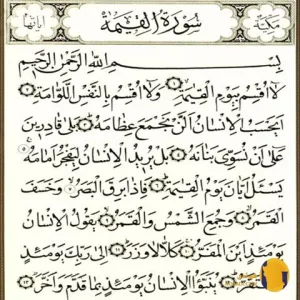 سُورَةُ الْقِيٰمَةِ
مَكِّيَّة
بِسْمِ اللهِ الرَّحْمٰنِ الرَّحِيْمِ
لَا اُقْسِمُ بِيَوْمِ الْقِيٰمَةِ وَلَا اُقْسِمُ بِالنَّفْسِ اللَّوَّامَةِ
اَيَحْسَبُ الْاِنْسَانُ اَلَّنْ نَجْمَعَ عِظَامَهُ بَلٰى قَادِرِيْنَ
عَلٰى اَنْ نُسَوِّيَ بَنَانَهُ بَلْ يُرِيْدُ الْاِنْسَانُ لِيَفْجُرَ اَمَامَهُ
يَسْـَٔلُ اَيَّانَ يَوْمُ الْقِيٰمَةِ فَاِذَا بَرِقَ الْبَصَرُ وَخَسَفَ
الْقَمَرُ وَجُمِعَ الشَّمْسُ وَالْقَمَرُ يَقُوْلُ الْاِنْسَانُ
يَوْمَئِذٍ اَيْنَ الْمَفَرُّ كَلَّا لَا وَزَرَ اِلٰى رَبِّكَ يَوْمَئِذٍ
يُنَبَّؤُا الْاِنْسَانُ يَوْمَئِذٍ بِمَا قَدَّمَ وَاَخَّرَ